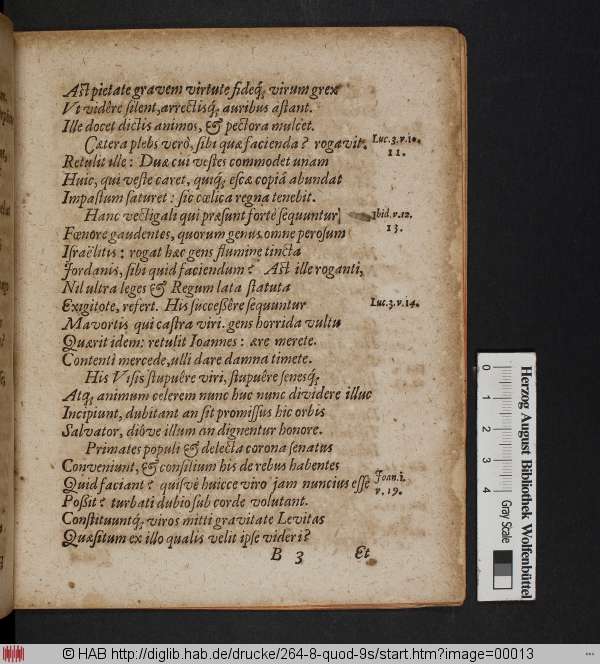 Ast pietate gravem virtute fideq́; virum grex
Vt vidêre silent, arrectisq́; auribus astant.
Ille docet dictis animos, & pectora mulcet.
Cætera plebs verò, sibi quæ facienda? rogavit. Luc. 3. v. 10.
11.
Retulit ille: Duæ cui vestes commodet unam
Huic, qui veste caret, quiq́; escæ copiâ abundat
Impastum saturet: sic cœlica regna tenebit.
Hanc vectigali qui præsunt fortè sequuntur, Ibid. v. 12.
13.
Fœnore gaudentes, quorum genus omne perosum
Israëlitis: rogat hæc gens flumine tincta
Jordanis, sibi quid faciendum? Ast ille roganti,
Nil ultra leges & Regum lata statuta
Exigitote, refert. His successêre sequuntur Luc. 3. v. 14.
Mavortis qui castra viri. gens horrida vultu
Quærit idem: retulit Ioannes: ære merete.
Contenti mercede, ulli dare damna timete.
His Visis stupuêre viri, stupuêre senesq́;
Atq́; animum celerem nunc huc nunc dividere illuc
Incipiunt, dubitant an sit promissus hic orbis
Salvator, diòve illum an dignentur honore.
Primates populi & delecta corona senatus
Conveniunt, & consilium his de rebus habentes
Quid faciant? quisvè huicce viro jam nuncius esse Joan. 1.
v. 19.
Possit? turbati dubio sub corde volutant.
Constituuntq́; viros mitti gravitate Levitas
Quæsitum ex illo qualis velit ipse videri?
B 3 Et
0 1 2 3 4
Gray Scale
Herzog August Bibliothek Wolfenbüttel
© HAB http://diglib.hab.de/drucke/264-8-quod-9s/start.htm?image=00013